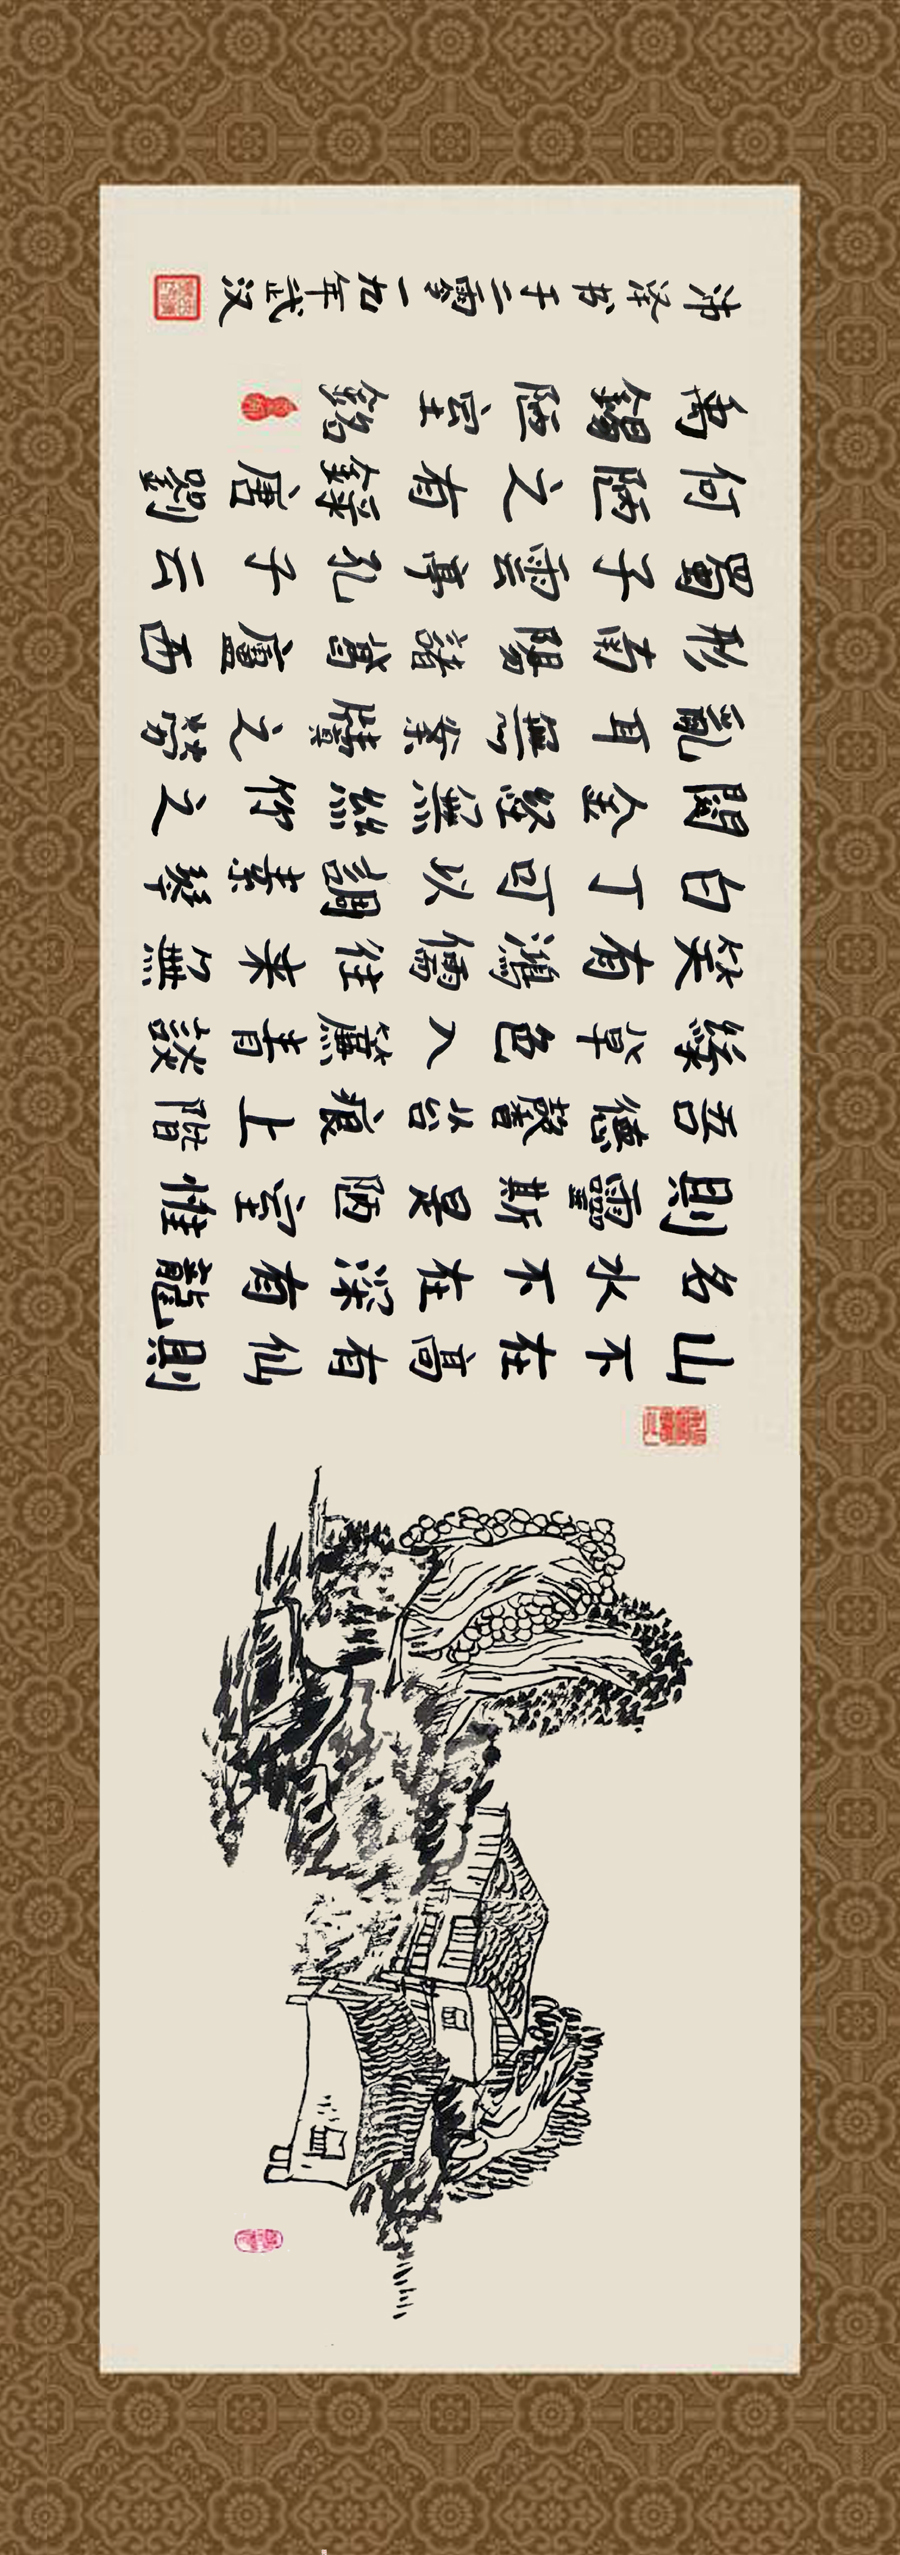 山不在高有仙則
名水不在深有龍
則靈斯是陋室惟
吾德馨苔痕上階
綠草色入簾青談
笑有鴻儒往来無
白丁可以調素琴
閱金経無絲竹之
亂耳無案牘之勞
形南陽諸葛廬西
蜀子雲亭孔子云
何陋之有錄唐劉
禹錫陋室銘
沛泽书于二零一九年武汉